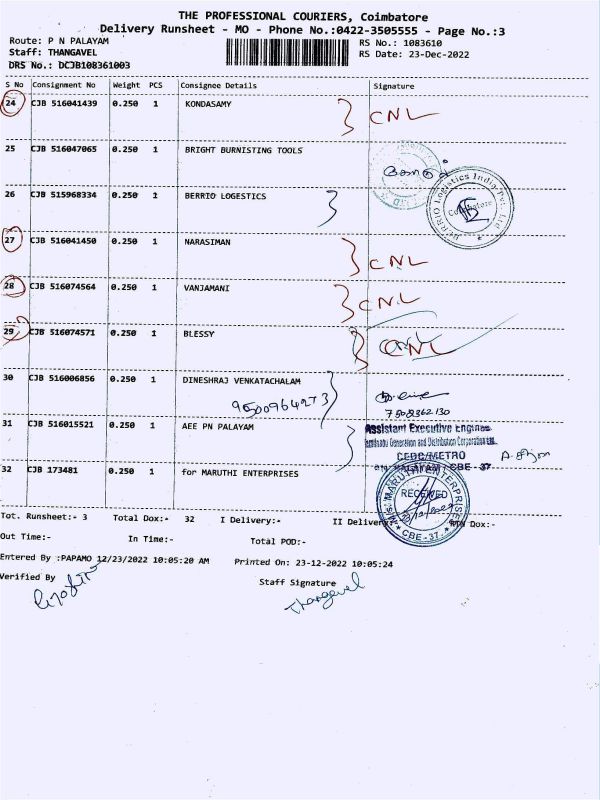 THE PROFESSIONAL COURIERS, Coimbatore
Delivery Runsheet - MO - Phone No.:0422-3505555 - Page No.:3
Route: P N PALAYAM RS No.: 1083610
Staff: THANGAVEL RS Date: 23-Dec-2022
DRS No.: DCJB108361003
S No Consignment No Weight PCS Consignee Details Signature
24 CJB 516041439 0.250 1 KONDASAMY CNL
25 CJB 516047065 0.250 1 BRIGHT BURNISTING TOOLS
26 CJB 515968334 0.250 1 BERRIO LOGESTICS
BERRIO Logistics India Pvt. Ltd
Coimbatore
27 CJB 516041450 0.250 1 NARASIMAN CNL
28 CJB 516074564 0.250 1 VANJAMANI CNL
29 CJB 516074571 0.250 1 BLESSY CNL
30 CJB 516006856 0.250 1 DINESHRAJ VENKATACHALAM
9500964273
31 CJB 516015521 0.250 1 AEE PN PALAYAM
Assistant Executive Engineer
Tamilnadu Generation and Distribution Corporation Ltd.
CEDC/METRO
P.N. PALAYAM / CBE - 37
32 CJB 173481 0.250 1 for MARUTHI ENTERPRISES
M/s. MARUTHI ENTERPRISES
RECEIVED
CBE-37.
Tot. Runsheet:- 3 Total Dox:- 32 I Delivery:- II Delivery:- RTN Dox:-
Out Time:- In Time:- Total POD:-
Entered By :PAPAMO 12/23/2022 10:05:20 AM Printed On: 23-12-2022 10:05:24
Verified By Staff Signature
Thangavel